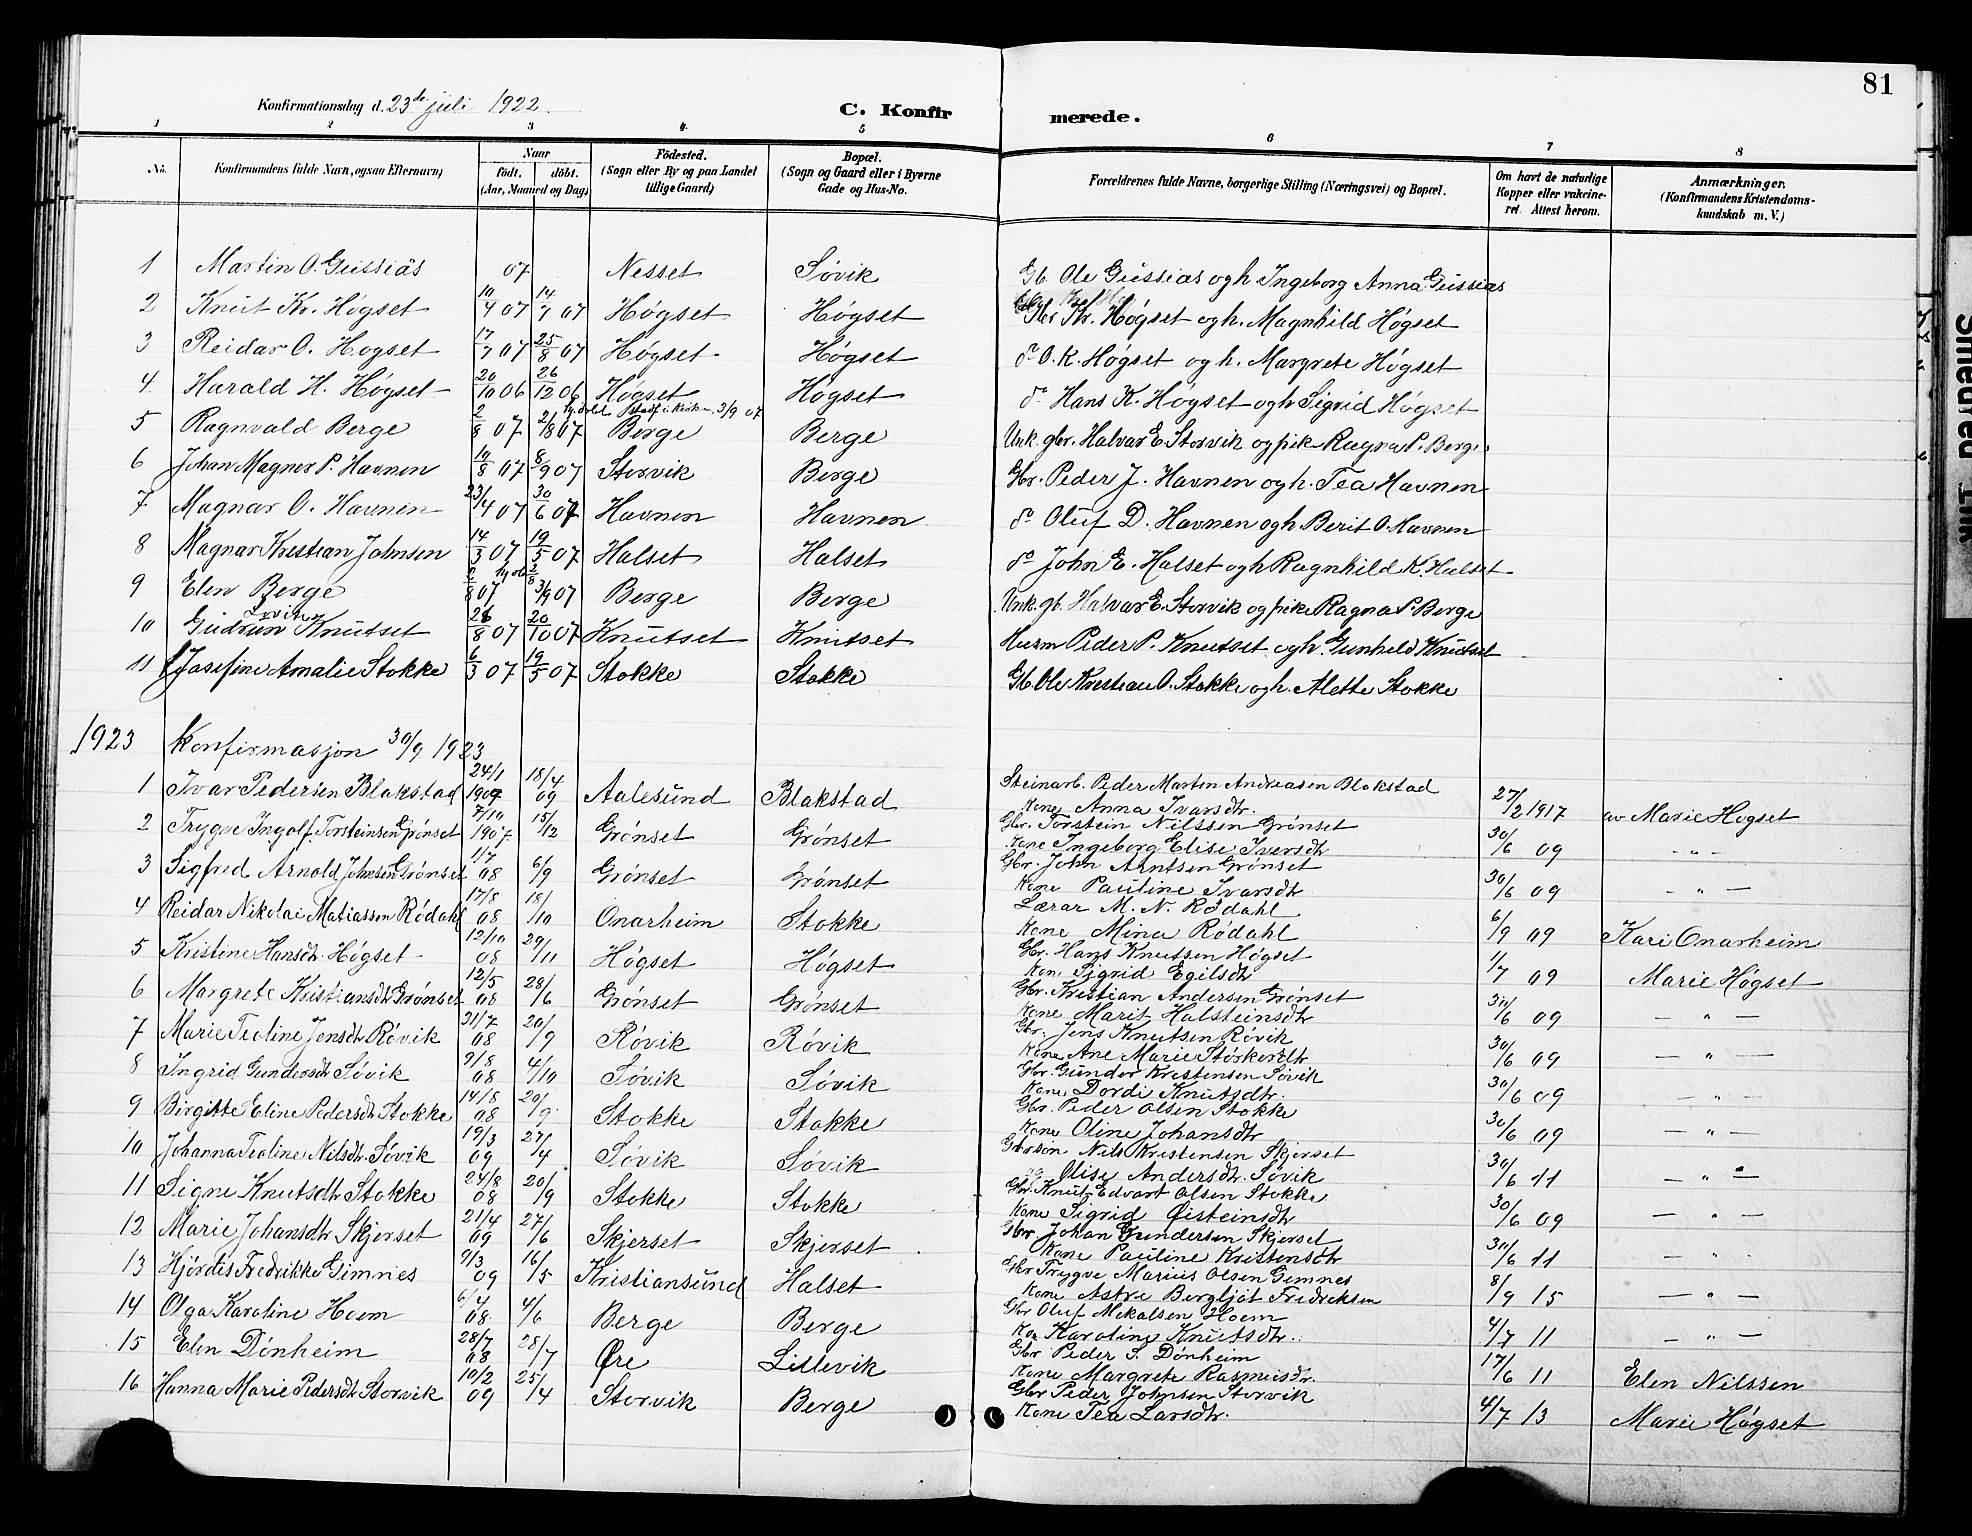 81
Konfirmationsdag d. 23de juli 1922
C. Konfirmerede.
1 2 3 4. 5 6 7 8
No. Konfirmandens fulde Navn, ogsaa Efternavn) Naar födt. döbt. (Aar, Maaned og Dag) Födested. (Sogn eller By og paa Landet tillige Gaard) Bopæl. (Sogn og Gaard eller i Byerne Gade og Hus-No. Forældrenes fulde Navne, borgerlige Stilling (Næringsvei) og Bopæl. Om havt de naturlige Kopper eller vakcineret. Attest herom. Anmærkninger. (Konfirmandens Kristendomskundskab m. V.)
1 Martin O. Gussiås 07 Nesset Søvik Gb. Ole Gussias og h. Ingeborg Anna Gussias
2 Knut Kr. Høgset 10/4 07 14/7 07 Høgset Høgset Gbr Kr. Høgset og h. Magnhild Høgset
3 Reidar O. Høgset 17/7 07 25/8 07 Høgset Høgset do O. K. Høgset og h. Margrete Høgset
4. Harald H. Høgset 20/10 06 26/12 06 Høgset Høgset do Hans K. Høgset og h Sigrid Høgset
5 Ragnvald Berge 2/8 07 2/8 07 hj.døbt Stadf. i kirken 3/9 07 Berge Berge Unk. gbr. Halvar E. Storvik og pike Ragna P. Berge
6 Johan Magner P. Havnen 10/8 07 8/9 07 Storvik Berge Gbr. Peder J. Havnen og h. Tea Havnen
7 Magnar O. Havnen 23/4 07 30/6 07 Havnen Havnen do Oluf D. Havnen og h Berit O. Havnen
8 Magnar Kristian Johnsen 14/3 07 19/5 07 Halset Halset do John E. Halset og h Ragnhild K. Halset
9 Elen Berge 2/8 07 hj.døbt 2/8 3/9 07 Berge Berge Unk. gb. Halvar E. Storvik og pike Ragna P. Berge
10 Gudrun Knutset 26/8 07 20/10 07 Knutset Knutset Husm Peder P. Knutset og h. Gunhild Knutset
11 Josefine Amalie Stokke 6/3 07 19/5 07 Stokke Stokke Gb. Ole Kristian O. Stokke og h. Alette Stokke
1923 Konfirmasjon 30/9 1923
1 Ivar Pedersen Blakstad 24/1 1909 18/4 09 Aalesund Blakstad Steinarb. Peder Martin Andreasen Blakstad
Kone Anna Ivarsdtr. 27/2 1917 av Marie Høgset
2 Trygve Ingolf Torsteinsen Grønset 7/10 1907 15/12 Grønset Grønset Gbr. Torstein Nilssen Grønset
Kone Ingeborg Elise Iversdtr 30/6 09 - " -
3 Sigfred Arnold Johnsen Grønset 1/7 08 6/9 Grønset Grønset Gbr. John Arntsen Grønset
Kone Pauline Ivarsdtr 30/6 09 - " -
4 Reidar Nikolai Matiassen Rødahl 17/8 08 18/10 Onarheim Stokke Lærar M. N. Rødahl
Kone Mina Rødahl 6/9 09 Kari Onarheim
5 Kristine Hansdtr. Høgset 12/10 08 29/11 Høgset Høgset Gbr. Hans Knutsen Høgset
Kone Sigrid Egilsdtr 1/7 09 Marie Høgset
6 Margrete Kristiansdtr Grønset 12/5 08 28/6 Grønset Grønset Gbr. Kristian Andersen Grønset
Kone Marit Halsteinsdtr 30/6 09 - " -
7 Marie Teoline Jensdtr Røvik 31/7 08 20/9 Røvik Røvik Gbr. Jens Knutsen Røvik
Kone Ane Marie Størkersdtr 30/6 09 - " -
8 Ingrid Gundersdtr Søvik 9/8 08 4/10 Søvik Søvik Gbr. Gunder Kristensen Søvik
Kone Dordi Knutsdtr. 30/6 09 - " -
9 Birgitte Eline Pedersdtr Stokke 14/8 08 20/9 Stokke Stokke Gbr. Peder Olsen Stokke
Kone Oline Johansdtr 30/6 09 - " -
10 Johanna Teoline Nilsdtr. Søvik 19/3 09 27/4 Søvik Søvik Gbrson Nils Kristensen Skjerset
og Elise Andersdtr Søvik 30/6 11 - " -
11 Signe Knutsdtr Stokke 24/8 08 20/9 Stokke Stokke Gbr. Knut Edvart Olsen Stokke
Kone Sigrid Øisteinsdtr 30/6 09 - " -
12 Marie Johansdtr Skjerset 21/4 09 27/6 Skjerset Skjerset Gbr Johan Gundersen Skjerset
Kone Pauline Kristensdtr 30/6 11 - " -
13 Hjørdis Fredrikke Gimnes 9/3 09 16/5 Kristiansund Halset Gbr Trygve Marius Olsen Gimnes
Kone Astri Bergljot Fredriksen 8/9 15 - " -
14 Olga Karoline Hoem 6/4 08 4/6 Berge Berge Gbr Oluf Mikalsen Hoem
Kone Karoline Knutsdtr. 4/7 11 - " -
15 Elen Dønheim 28/7 08 28/7 Øre Lillevik Gbr Peder S. Dønheim
Kone Margrete Rasmusdtr. 17/6 11 Elen Nilssen
16 Hanna Marie Pedersdtr Storvik 10/2 09 25/4 Storvik Berge Gbr Peder Johnsen Storvik
Kone Tea Larsdtr. 4/7 13 Marie Høgset